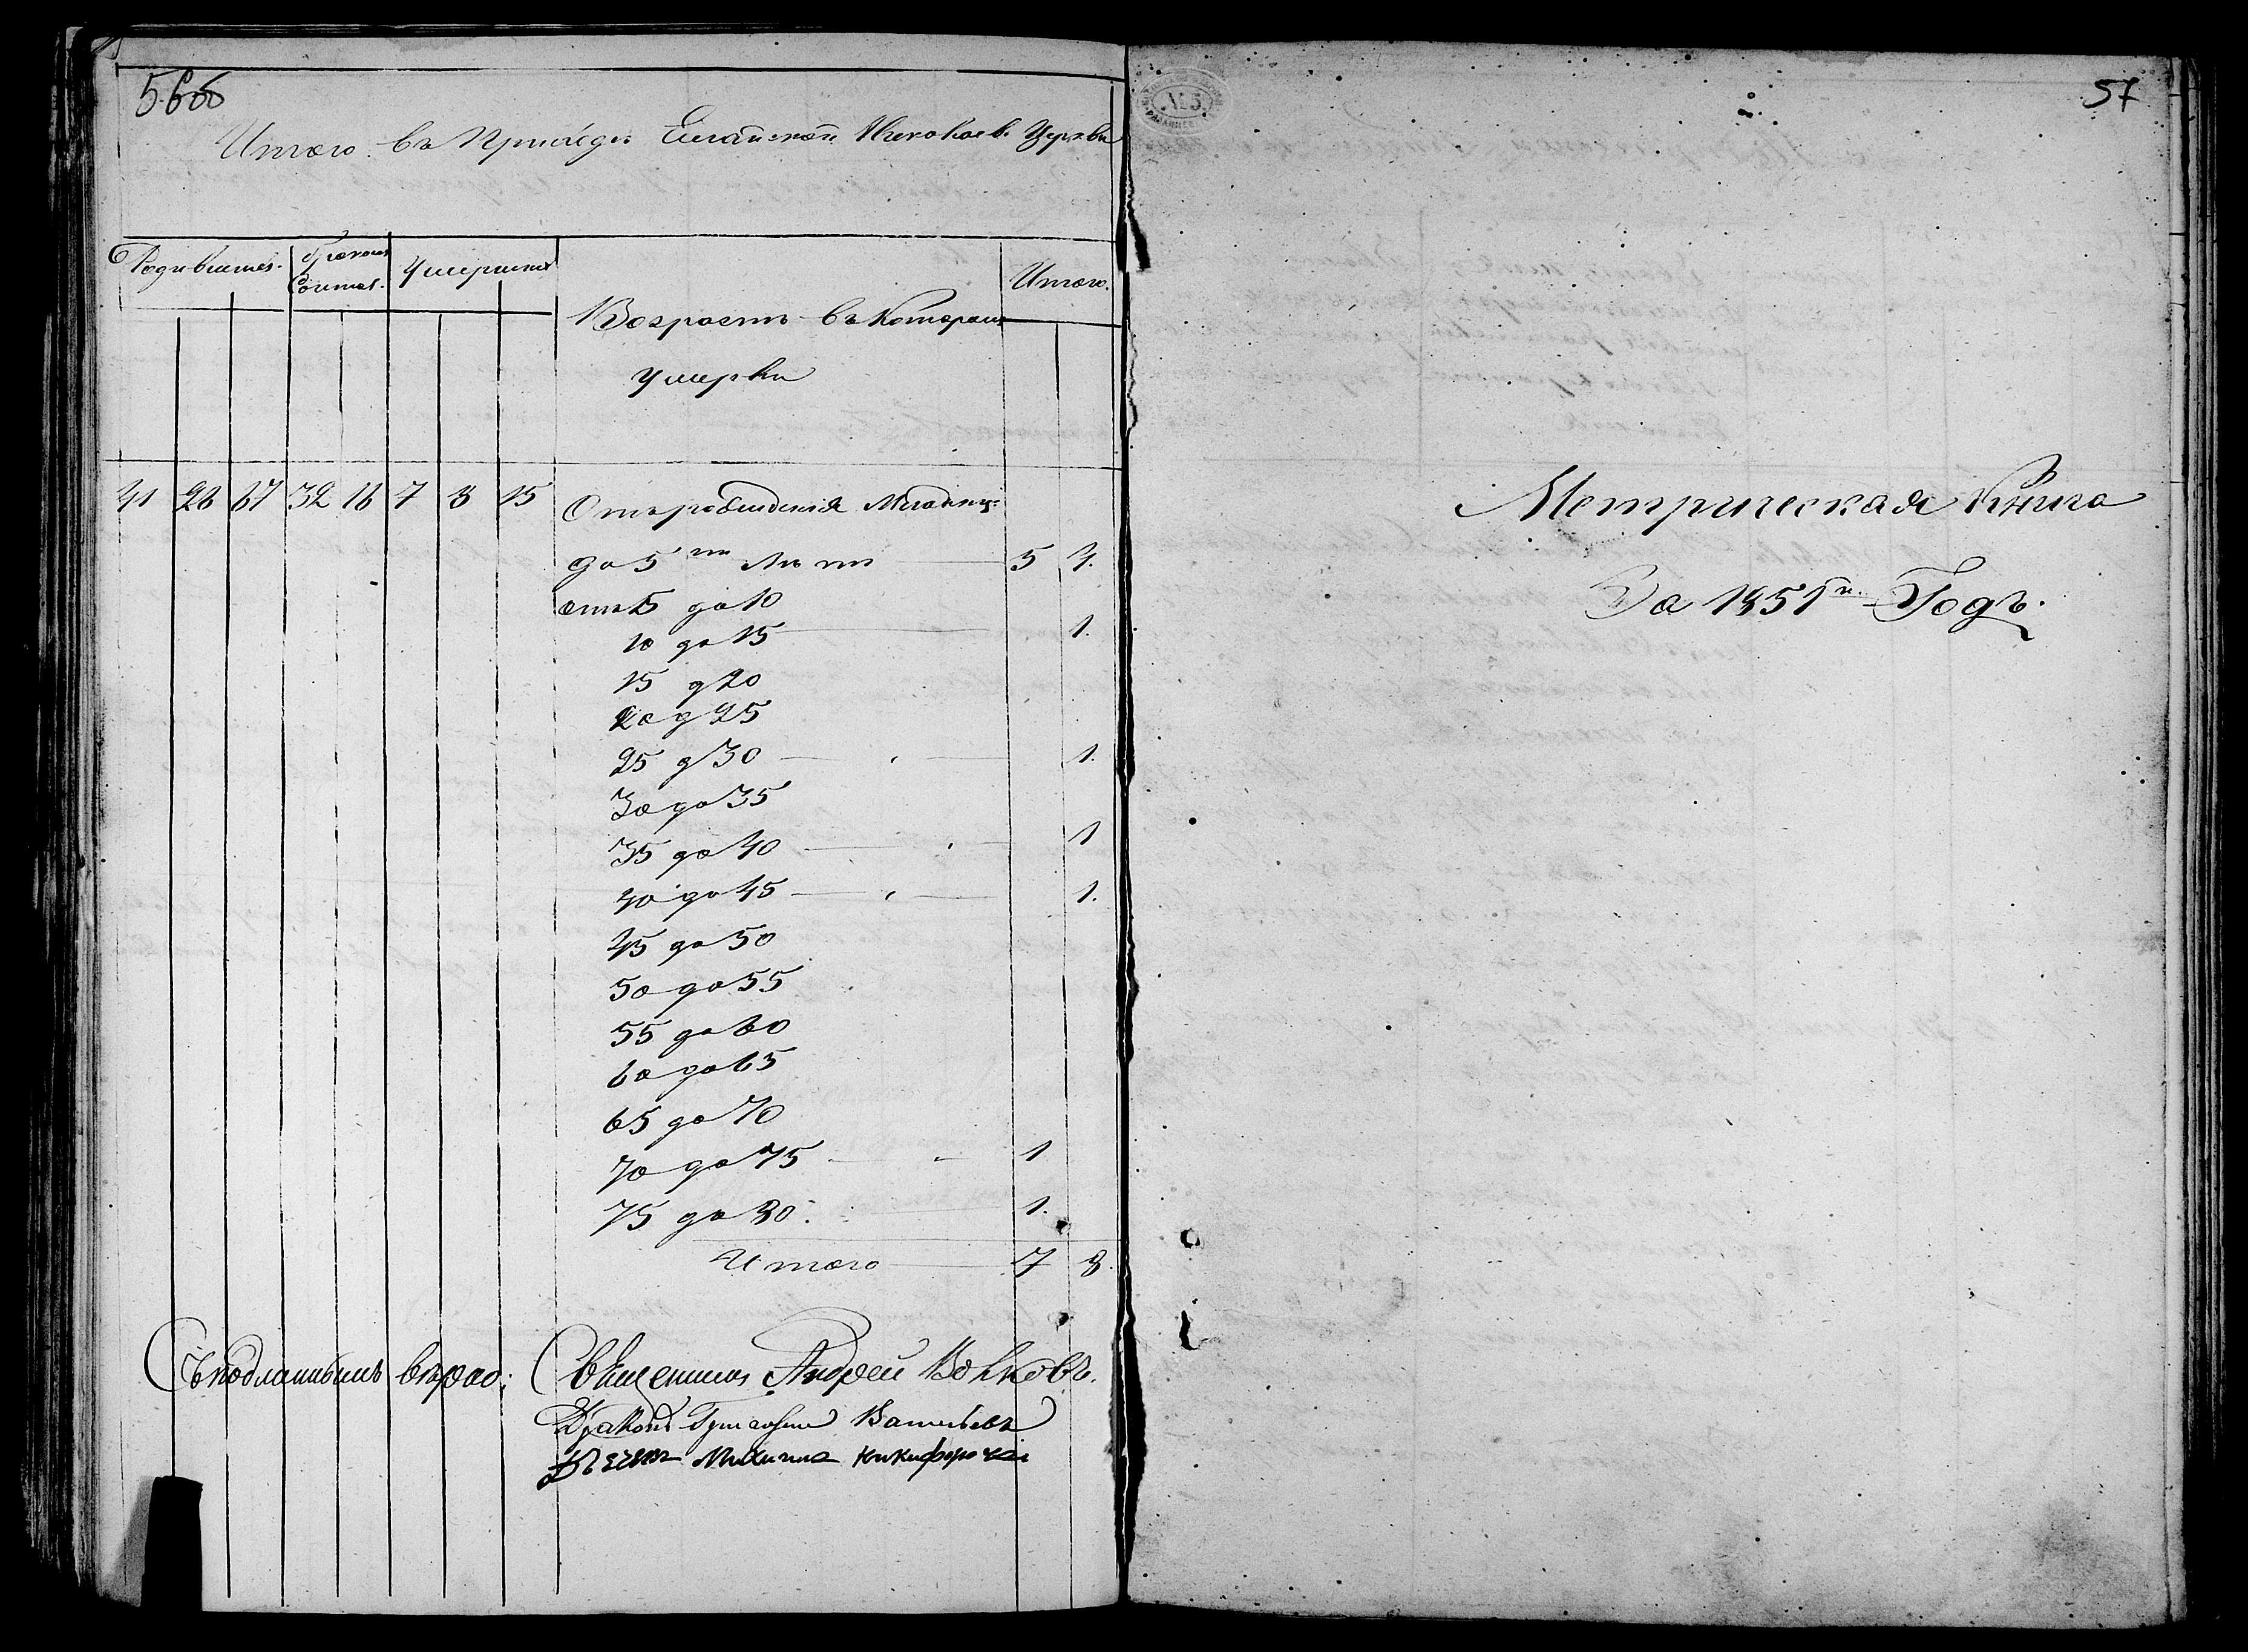 56об
Итого въ Приходѣ Николаев. Церкви
Родившихся.
Браковъ
Сочитав.
Умершихъ
Итого.
Возрастъ въ которомъ
умерли
41 26 67 32 16 7 8 15 Отъ рождения Младенц:
до 5ти лѣтъ 5 4.
отъ 5 до 10
10 до 15 1.
15 д 20
20 д 25
25 д 30 1.
30 до 35
35 до 40 1
40 до 45 1.
45 до 50
50 до 55
55 до 60
60 до 65
65 до 70
70 до 75 1
75 до 80. 1.
Итого 7 8.
Съ подлиннымъ вѣрно: Священникъ Андрей Волковъ.
Дьяконъ Григорий Васильевъ
Михаилъ
№5
57
Метрическая Книга
За 1851й Годъ.